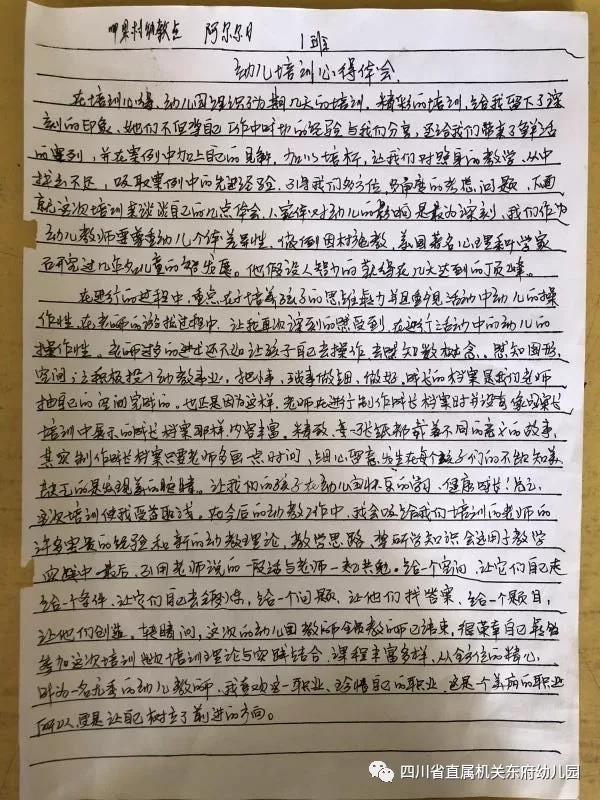 呷贝村幼教点 阿尔尔日 1班
幼儿培训心得体会
在培训心得、幼儿园组织了为期几天的培训,精彩的培训,给我留下了深
刻的印象,她们不但掌自己工作中时的经验与我们分享,还给我们带来了鲜活
的案例,并在案例中加上自己的见解,加以培析,让我们对照自的教学,从中
找出不足,吸取案例中的先进经验,引导我们多方位,多角度的考虑问题,下面
就这次培训来谈谈自己的几点体会,家体对幼儿的影响是最为深刻,我们作为
幼儿教师要尊重幼儿个体差异性,做到因材施教,美国著名心理科学家
研究过几年幼儿童的智力发展。他假设人智力的获得在几大达到的顶峰。
在进行的过程中,重点在于培养孩子的思维能力并且重视活动中幼儿的操
作性,在老师的游戏过程中,让我再次深刻的感受到,在进行活动中的幼儿的
操作性。老师过多的讲述还不如让孩子自己去操作,去感知数概念、感知图形、
空间,注积极投入幼教事业,把件、琐事做细,做好,成长的档案是我们老师
抽自己的空闲完成的。也正是因为这样,老师在进行制作成长档案时并没有像国家长
培训中展示的成长档案那样内容丰富。精致、每一张纸都载着不同的意义的故事,
其实制作成长档案只要老师多画一点时间,细心留意,发生在每个孩子们的不知知美
缺乏的是发现美的眼睛。让我们的孩子在幼儿园快乐的学习、健康成长!总之,
这次培训使我受益匪浅。在今后的幼教工作中,我会吸给我们培训的老师的
许多宝贵的经验和新的幼教理论,教学思路,整研学知识会运用于教学
实践中,最后,引用老师说的一段话与老师一起共勉。给一个空间,让它们自己走
给一个条件,让它们自己去锻炼,给一个问题,让他们找答案、给一个题目,
让他们创造。转瞬间,这次的幼儿园教师全员教师已结束,很荣幸自己能够
参加这次培训,此次培训理论与实践结合,课程丰富多样,从全方位的精心,
时为一名优秀的幼儿教师,我喜欢这一职业、珍惜自己的职业,这是一个美丽的职业
所以更是让自己树立了前进的方向。
四川省直属机关东府幼儿园